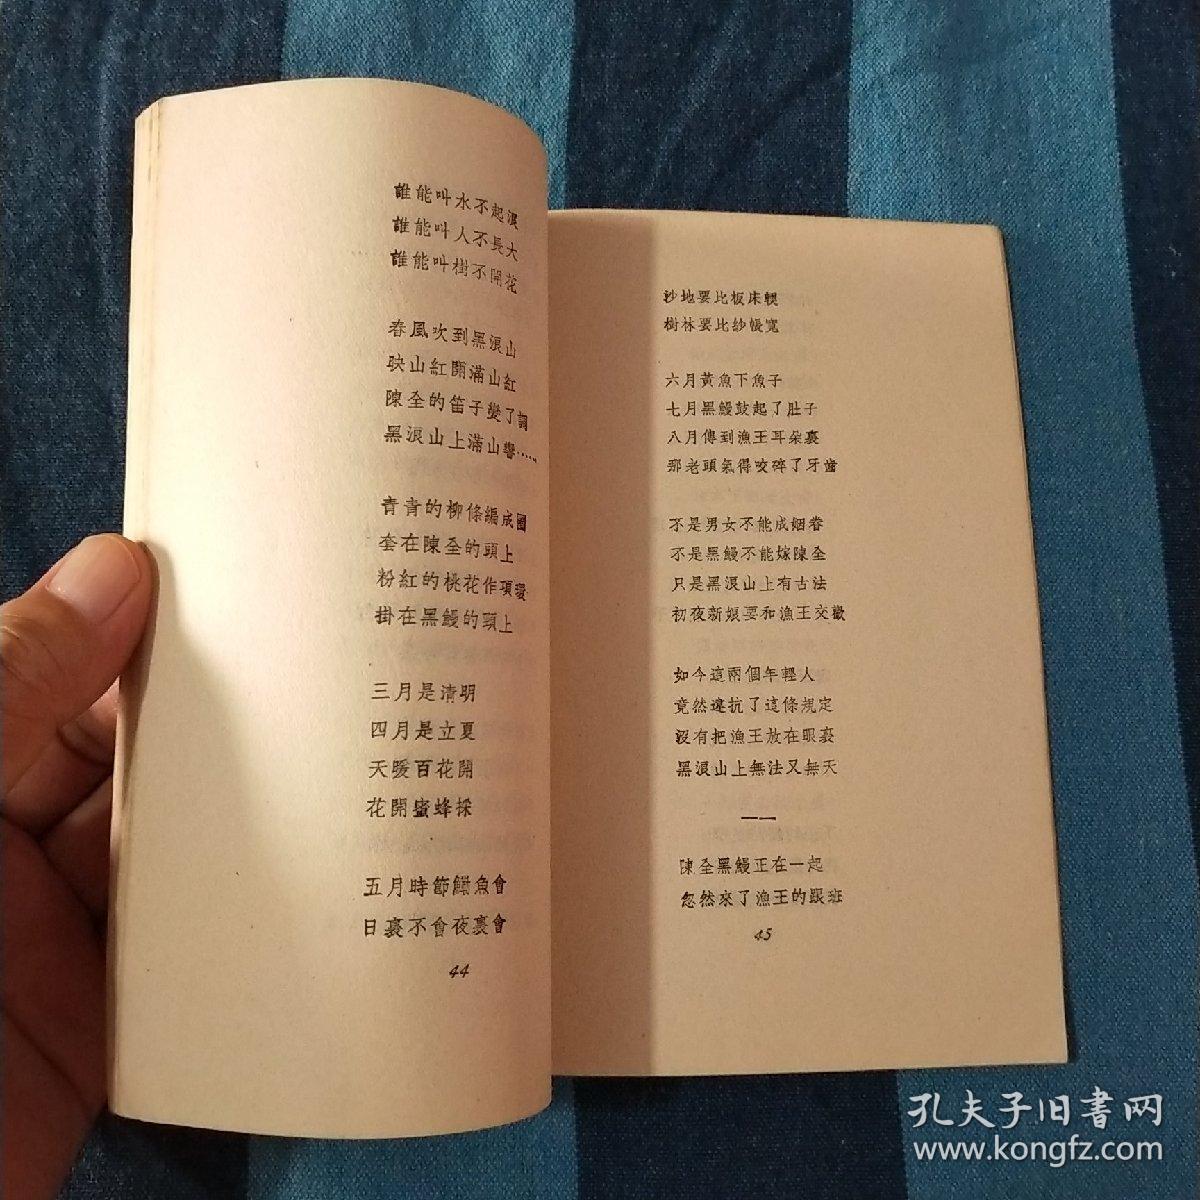 誰能叫水不起浪
誰能叫人不長大
誰能叫樹不開花
春風吹到黑浪山
映山紅開滿山紅
陳全的笛子變了調
黑浪山上滿山響……
青青的柳條編成圈
套在陳全的頭上
粉紅的桃花作項環
掛在黑鰻的頸上
三月是清明
四月是立夏
天暖百花開
花開蜜蜂採
五月時節鯽魚會
日裏不會夜裏會
44
沙地要比板床輭
樹林要比紗帳寬
六月黃魚下魚子
七月黑鰻鼓起了肚子
八月傳到漁王耳朵裏
那老頭氣得咬碎了牙齒
不是男女不能成姻眷
不是黑鰻不能嫁陳全
只是黑浪山上有古法
初夜新娘要和漁王交歡
如今這兩個年輕人
竟然違抗了這條規定
沒有把漁王放在眼裏
黑浪山上無法又無天
一一
陳全黑鰻正在一起
忽然來了漁王的跟班
45
孔夫子旧書网
www.kongfz.com